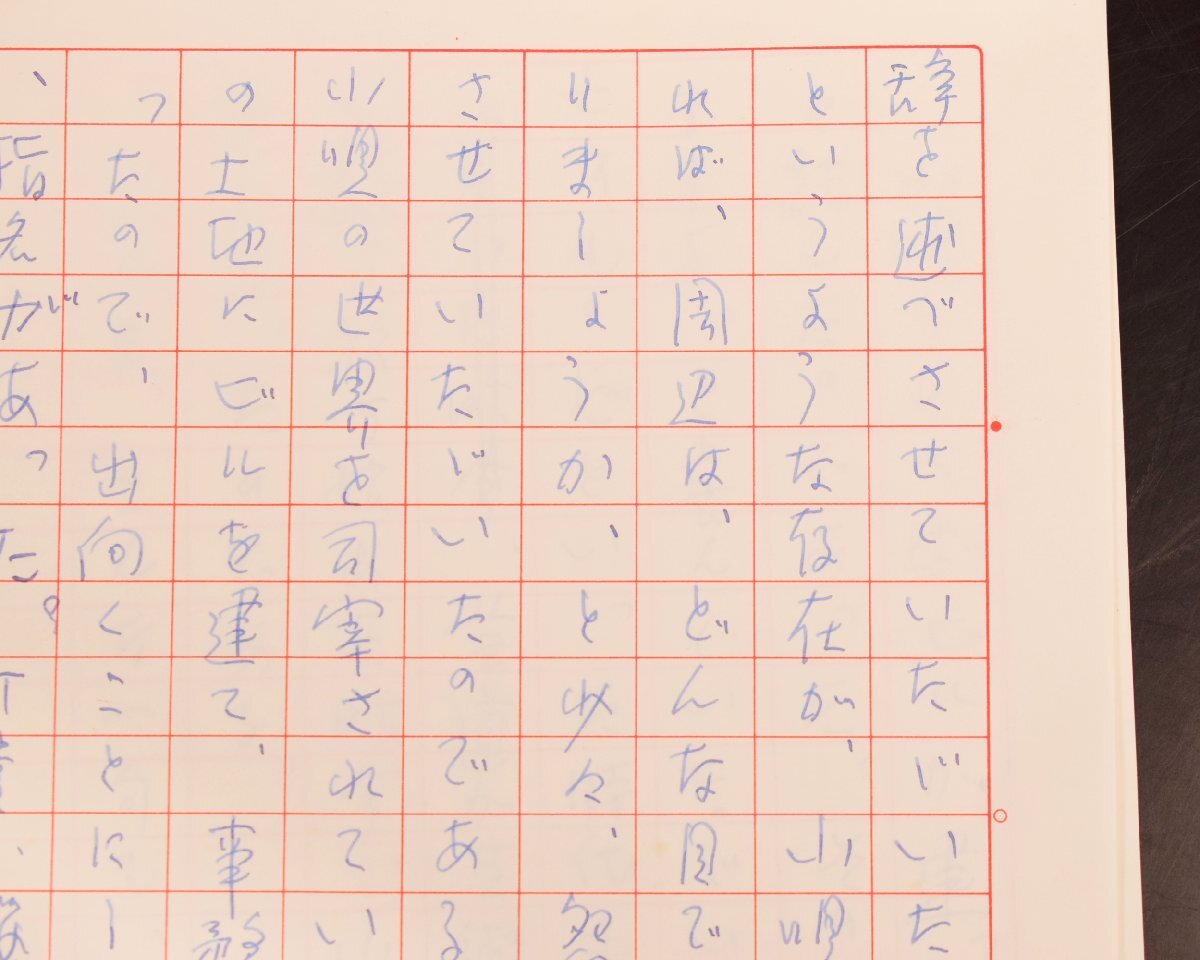 辞を述べさせていたゞいた
というような存在が、小唄
れば、周辺は、どんな目で
りましようか、と少々、
させていたゞいたのである
小唄の世界を司宰されてい
の土地にビルを建て、事務
ったので、出向くことにし
、名があった